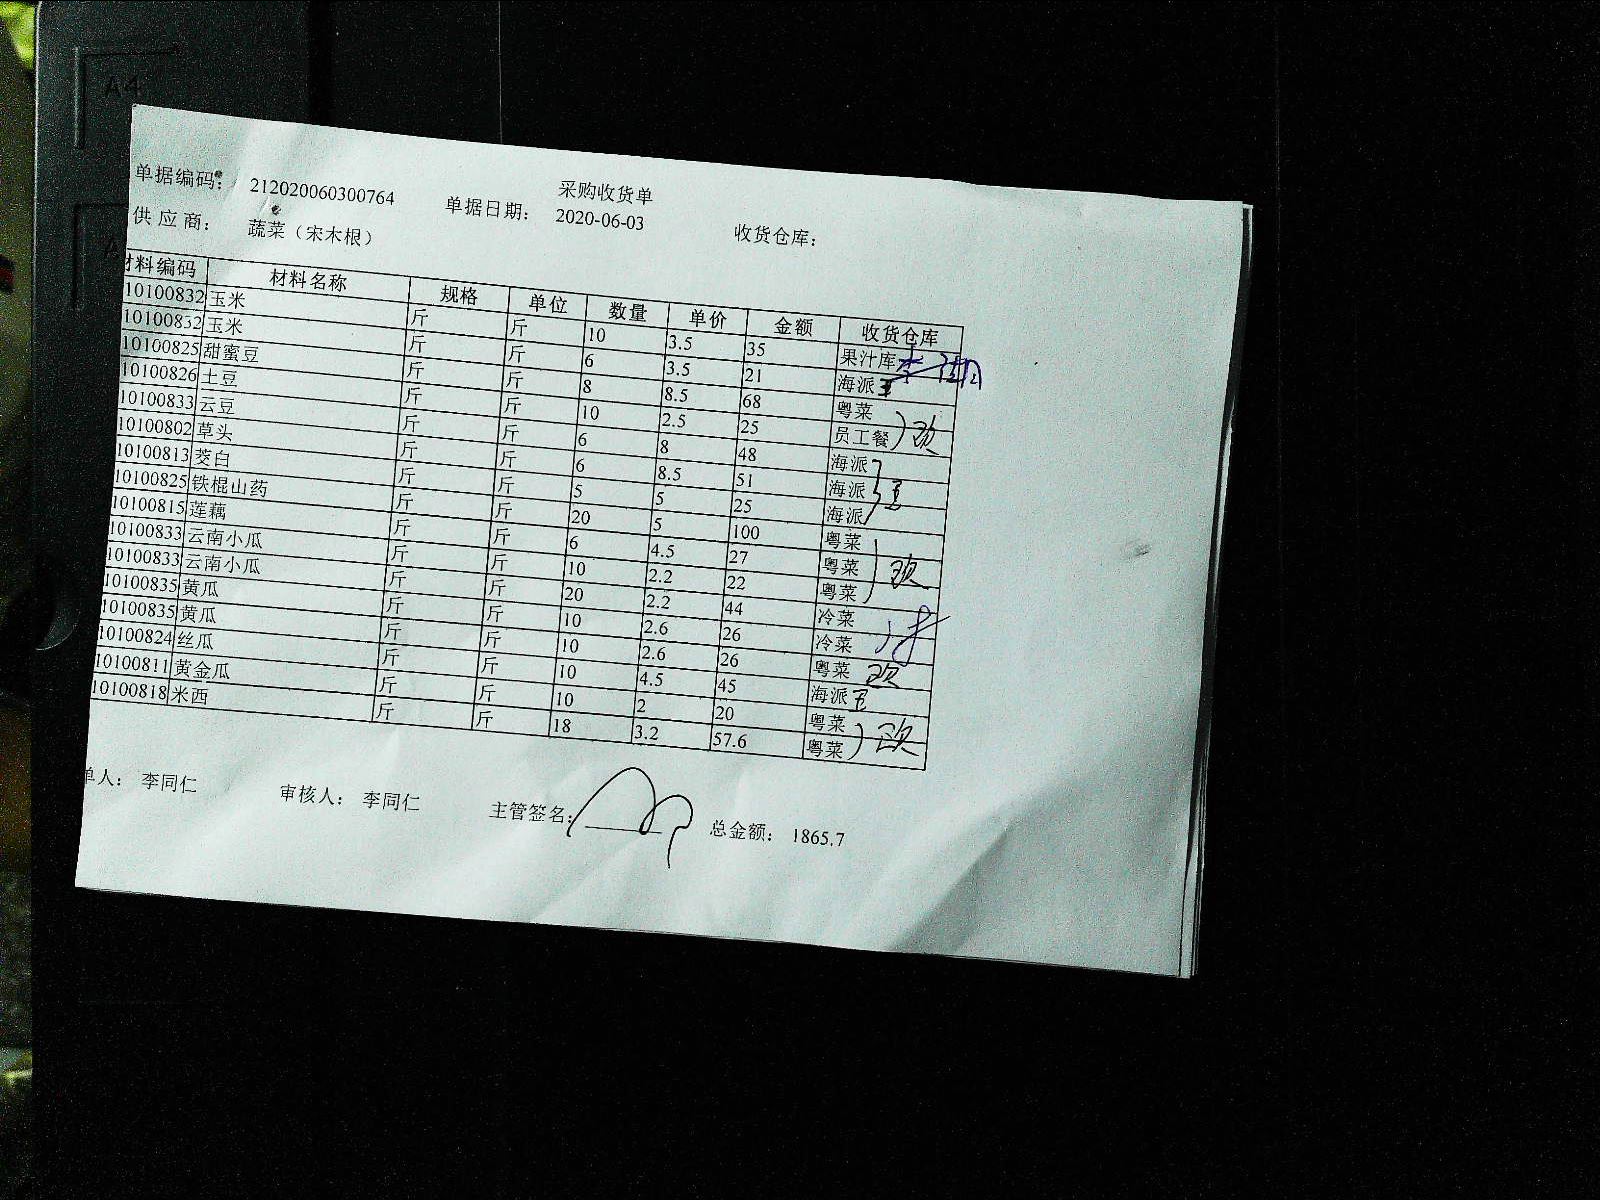 采购收货单
单据编码： 212020060300764 单据日期： 2020-06-03 收货仓库：
供应商： 蔬菜（宋木根）
材料编码 材料名称 规格 单位 数量 单价 金额 收货仓库
10100832 玉米 斤 斤 10 3.5 35 果汁库
10100832 玉米 斤 斤 6 3.5 21 海派 王
10100825 甜蜜豆 斤 斤 8 8.5 68 粤菜
10100826 土豆 斤 斤 10 2.5 25 员工餐
10100833 云豆 斤 斤 6 8 48 海派
10100802 草头 斤 斤 6 8.5 51 海派 王
10100813 茭白 斤 斤 5 5 25 海派
10100825 铁棍山药 斤 斤 20 5 100 粤菜
10100815 莲藕 斤 斤 6 4.5 27 粤菜
10100833 云南小瓜 斤 斤 10 2.2 22 粤菜
10100833 云南小瓜 斤 斤 20 2.2 44 冷菜
10100835 黄瓜 斤 斤 10 2.6 26 冷菜
10100835 黄瓜 斤 斤 10 2.6 26 粤菜
10100824 丝瓜 斤 斤 10 4.5 45 海派 王
10100811 黄金瓜 斤 斤 10 2 20 粤菜
10100818 米西 斤 斤 18 3.2 57.6 粤菜
单人： 李同仁 审核人： 李同仁 主管签名： 总金额： 1865.7